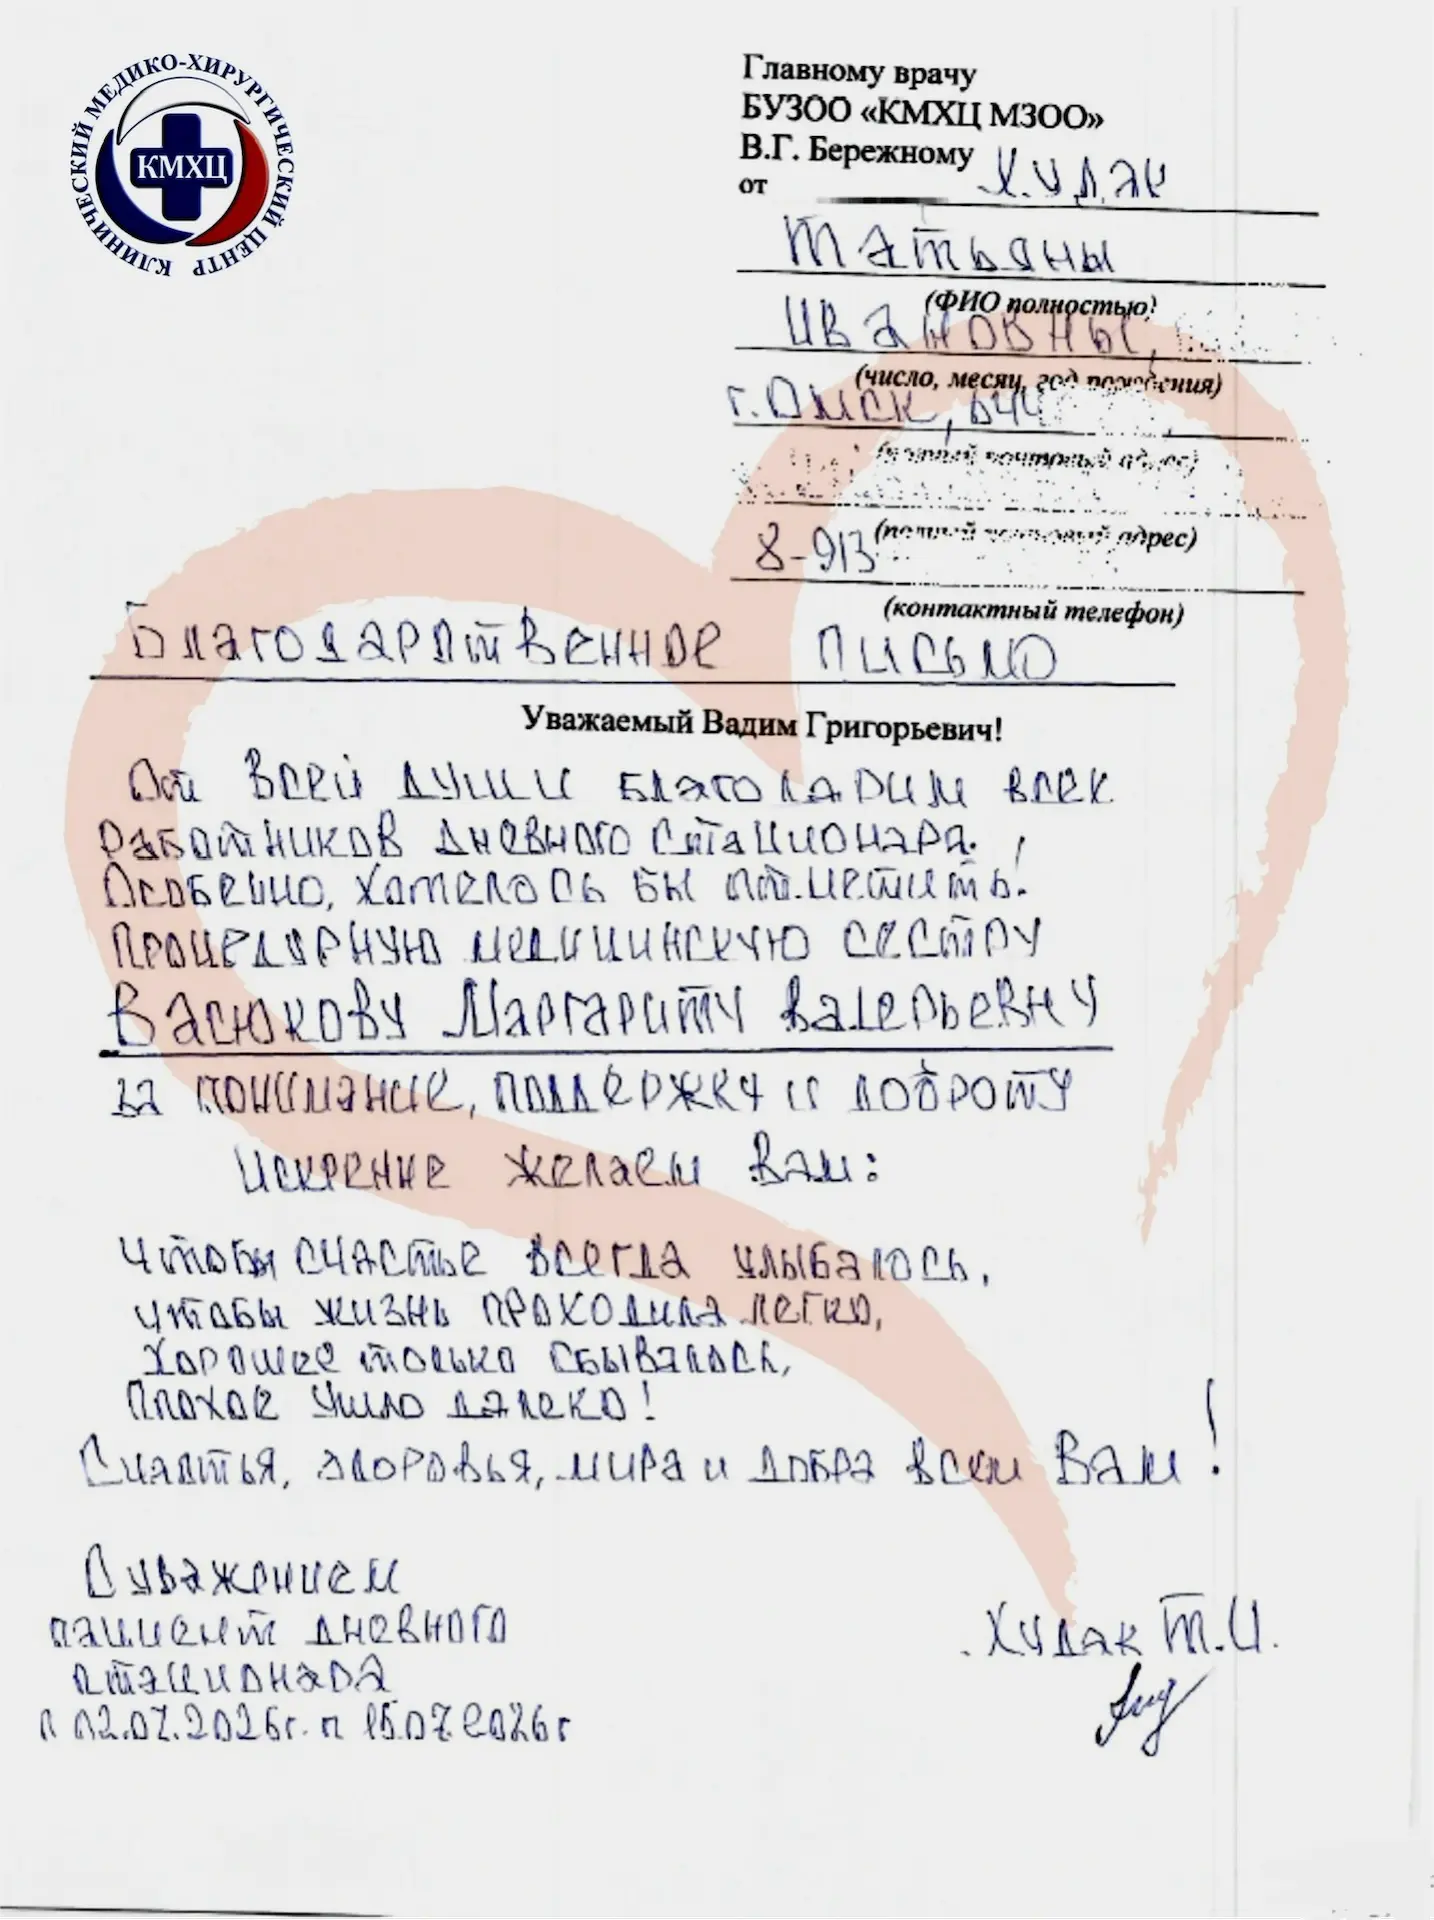 КЛИНИЧЕСКИЙ МЕДИКО-ХИРУРГИЧЕСКИЙ ЦЕНТР
КМХЦ
Главному врачу
БУЗОО «КМХЦ МЗОО»
В.Г. Бережному
от Худак
Татьяны
(ФИО полностью)
Ивановны,
(число, месяц, год рождения)
г. Омск,
(полный почтовый адрес)
(полный почтовый адрес)
8-913
(контактный телефон)
Благодарственное письмо
Уважаемый Вадим Григорьевич!
От всей души благодарим всех
работников дневного стационара.
Особенно, хотелось бы отметить!
процедурную медицинскую сестру
Васюкову Маргариту Валерьевну
за понимание, поддержку и доброту
Искренне желаем Вам:
Чтобы счастье всегда улыбалось,
чтобы жизнь проходила легко,
Хорошее только сбывалось,
Плохое ушло далеко!
Счастья, здоровья, мира и добра всем Вам!
С уважением
пациент дневного
стационара
с 02.07.2026г. п 15.07.2026г
Худак Т.И.